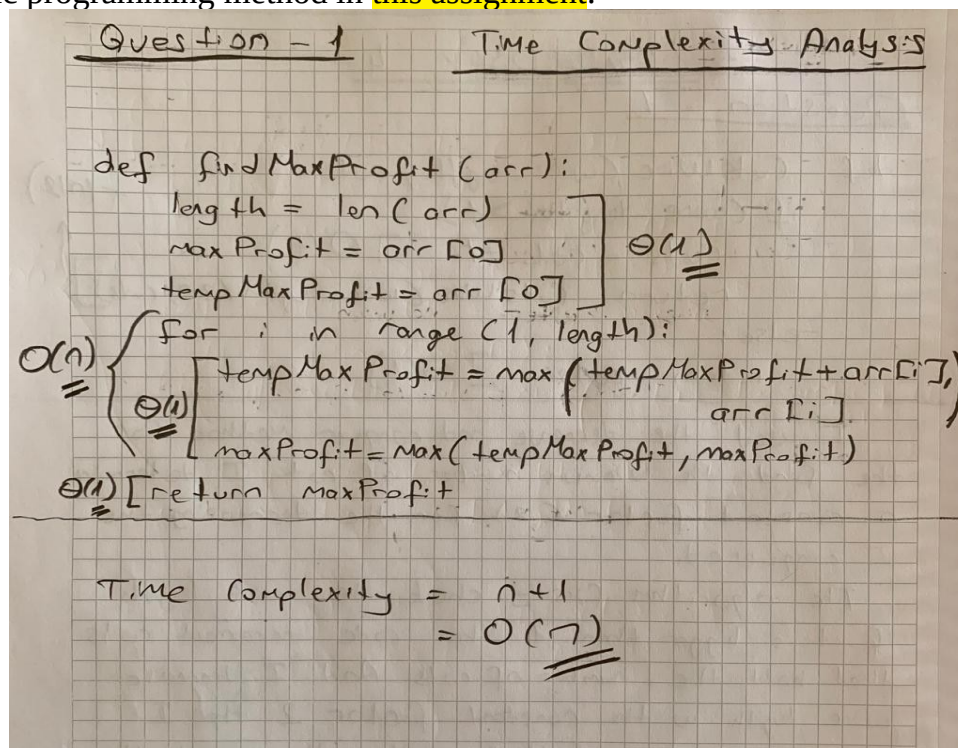 programming method in this assignment.
Question - 1 Time Complexity Analysis
def findMaxProfit (arr):
length = len(arr)
maxProfit = arr [0]
Θ(1)
tempMaxProfit = arr [0]
for i in range (1, length):
O(n)
tempMaxProfit = max (tempMaxProfit + arr[i],
Θ(1)
arr [i])
maxProfit = max( tempMaxProfit, maxProfit)
Θ(1) [return maxProfit
Time Complexity = n+1
= O(n)